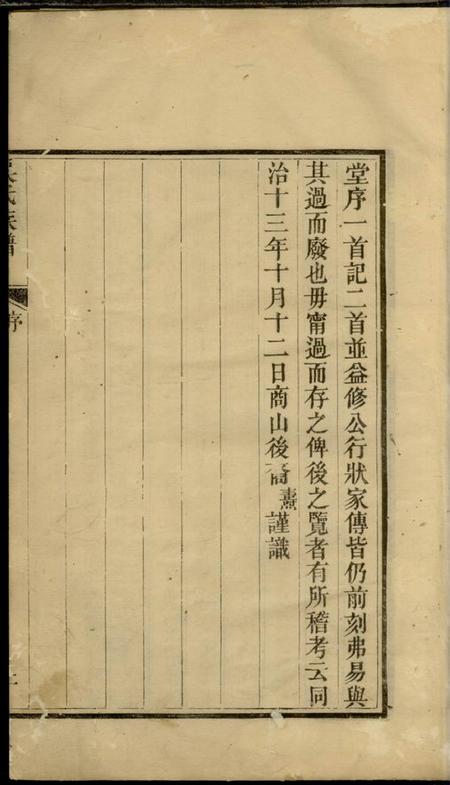 堂序一首記二首並益修公行狀家傳皆仍前刻弗易與
其過而廢也毋甯過而存之俾後之覽者有所稽考云同
治十三年十月十二日商山後裔燾謹識
氏族譜
序